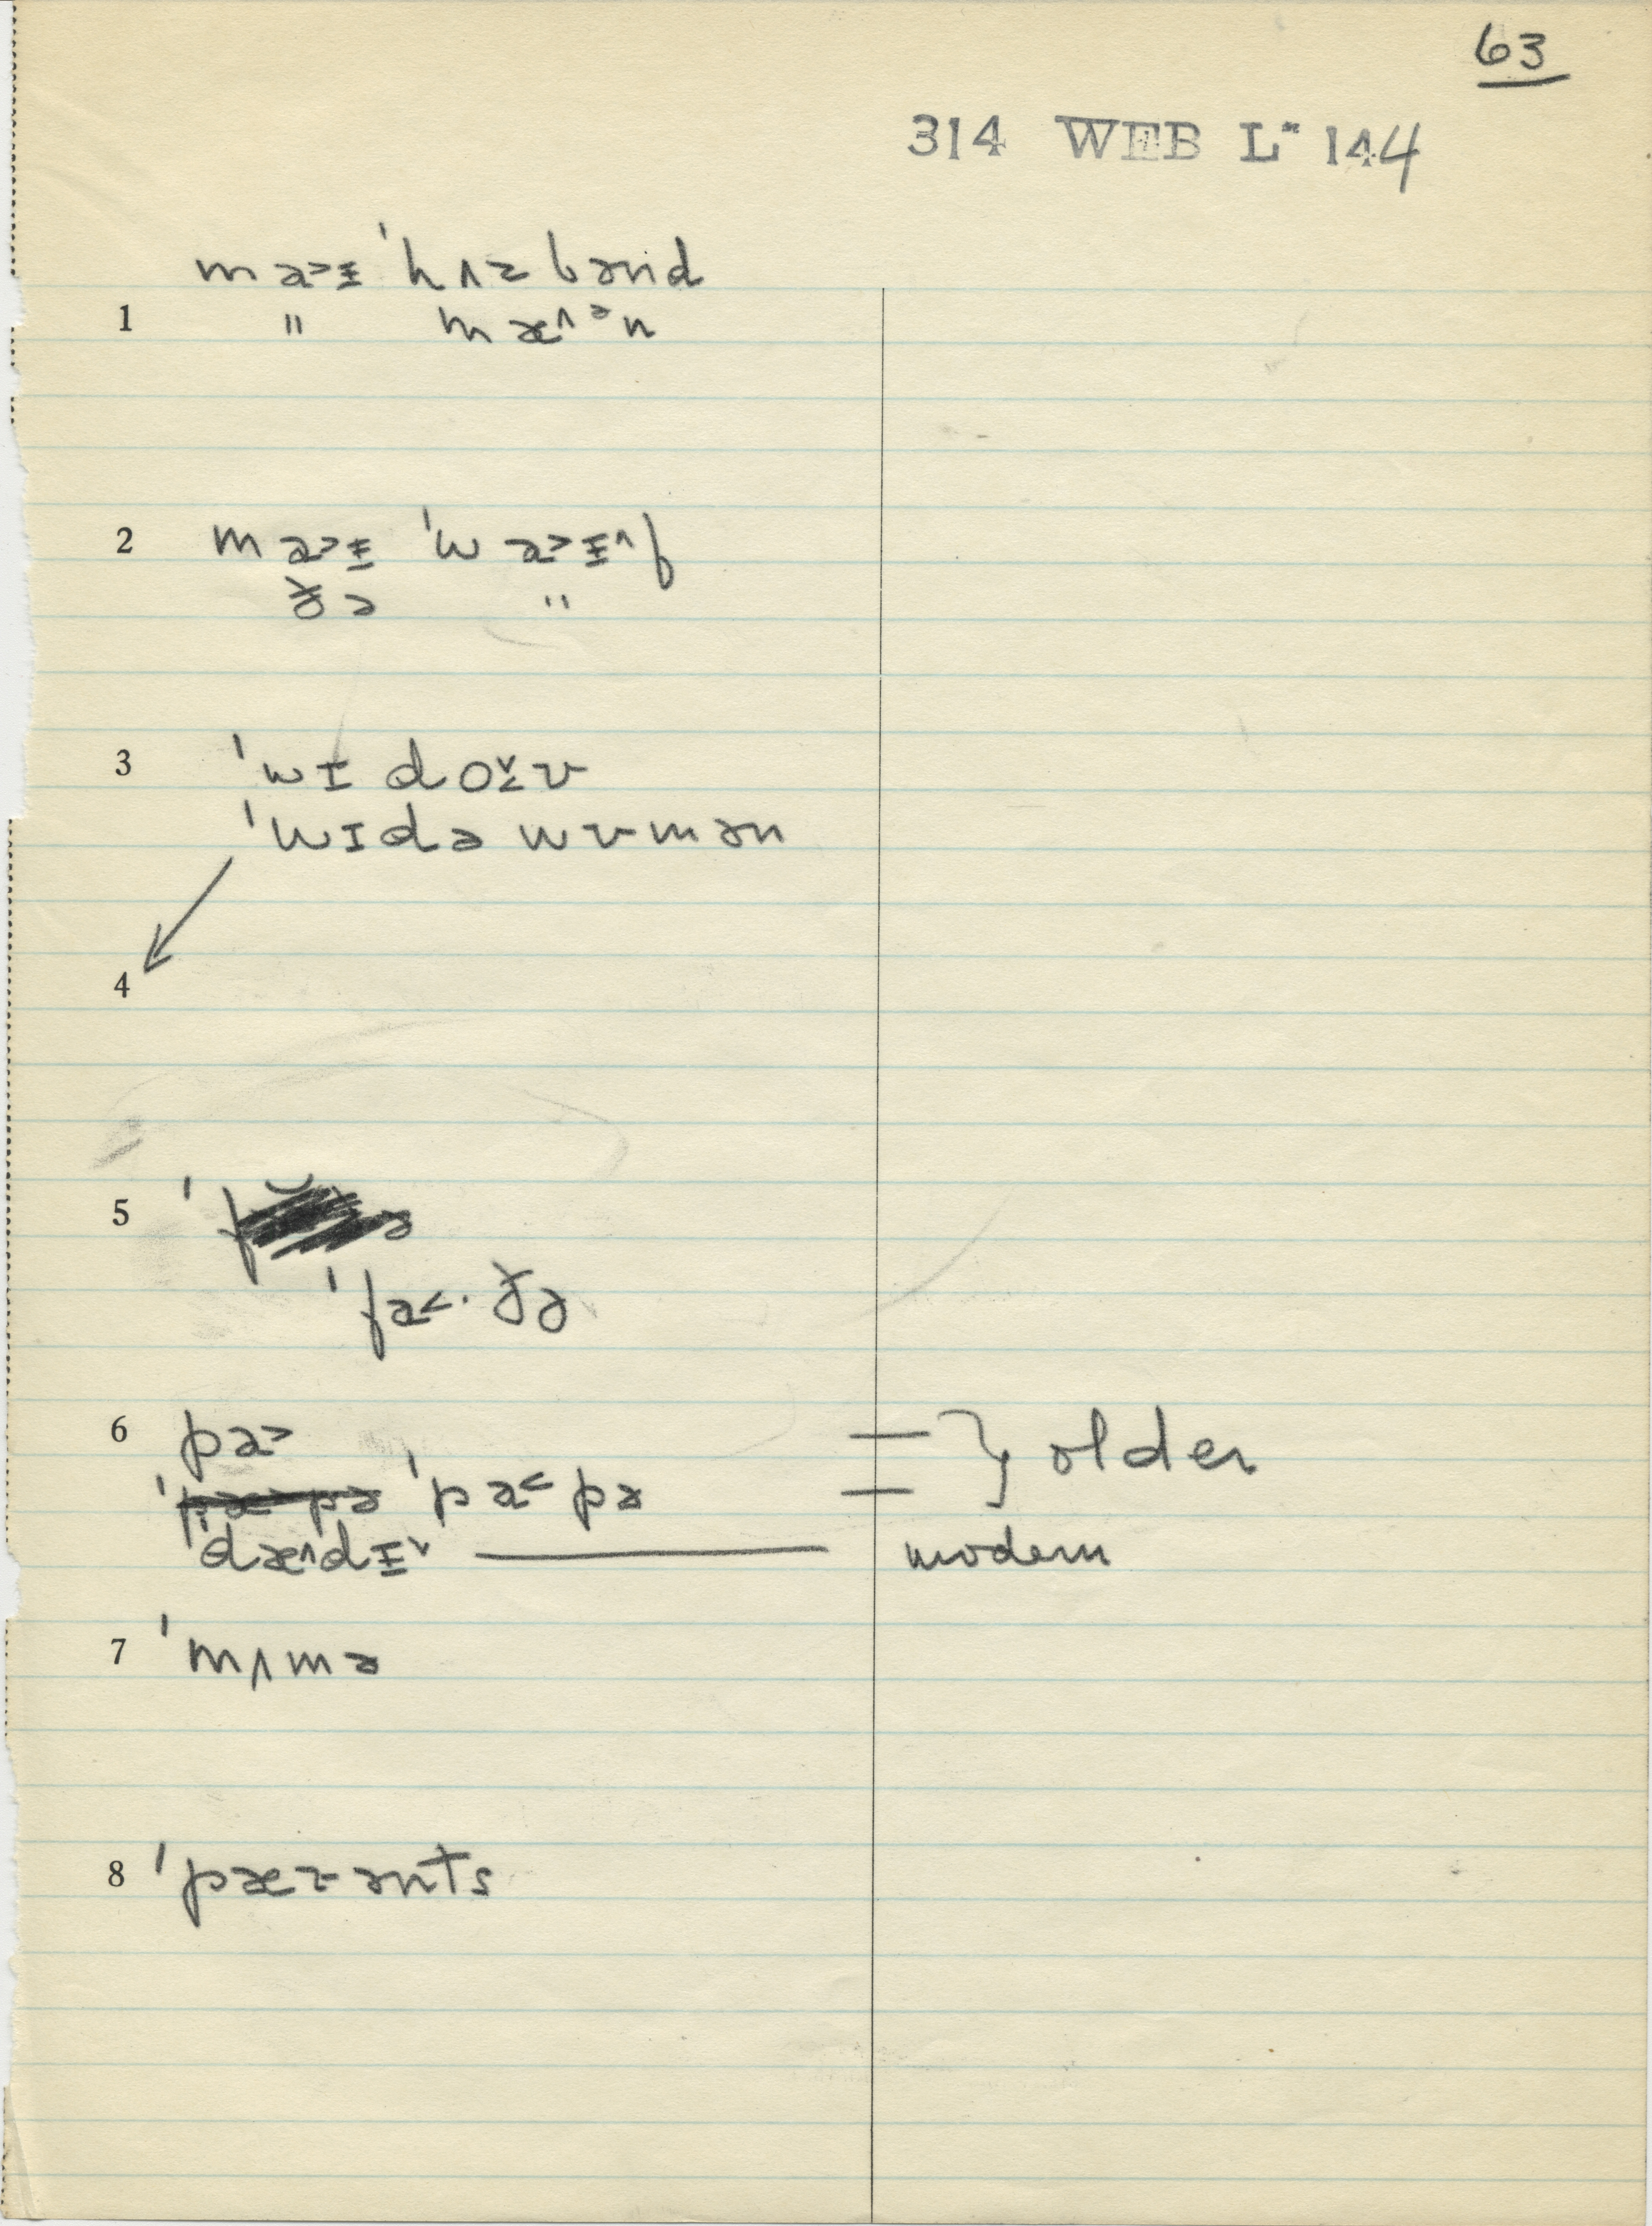 63
314 WEB L- 144
ma>ɪ̵ ˈhʌzbənd
1 " mæ^ᵊn
2 ma>ɪ̵ ˈwa>ɪ̵^f
ðə "
3 ˈwɪdo˅<ʊ
ˈwɪdə wʊmən
4
5
ˈfa<·ðə
6 pa> — } older
ˈpa<pə —
ˈdæ^dɪ̵˅ — modern
7 ˈmʌmə
8 ˈpæɜənts